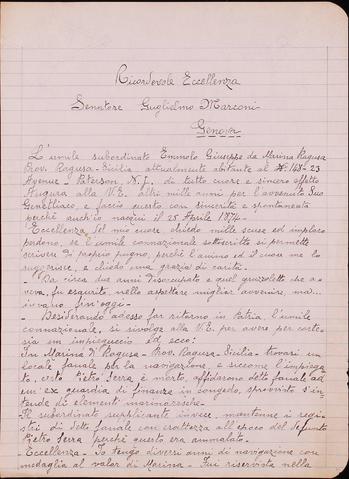 Ricordevole Eccellenza
Senatore Guglielmo Marconi
Genova
L'umile subordinato Emmolo Giuseppe da Marina Ragusa
Prov. Ragusa-Sicilia attualmente abitante al N. 163-23
Avenue - Paterson, N.J. di tutto cuore e sincero affetto
Augura alla V.E. altri mille anni per l'avvenuto Suo
Genetliaco, e faccio questo con sincerità e spontaneità
perchè anch'io nacqui il 25 Aprile 1874-
Eccellenza, del mio cuore, chiedo mille scuse ed imploro
perdono, se l'umile connazionale sottoscritto si permette
scrivere di proprio pugno, perchè l'animo ed il cuore me lo
suggerisce, e chiedo una grazia di carità.
Da circa due anni disoccupato e quel gruzzoletto che a=
veva, fu esaurito, nello aspettare migliore avvenire, ma...
invano fin'oggi -
Desiderando adesso far ritorno in Patria, l'umile
connazionale, si rivolge alla V.E. per avere per corte=
sia un impieguccio ed ecco:
In Marina di Ragusa - Prov. Ragusa-Sicilia - trovasi un
locale fanale per la navigazione, e siccome l'impiega=
to, certo Pietro Serra è morto, affidarono detto fanale ad
un'ex guardia di finanza in congedo, sprovvisto s'in=
tende di elementi marinareschi.
Il subordinato supplicante invece, mantenne i regi=
stri di detto fanale con esattezza all'epoca del defunto
Pietro Serra perchè questo era ammalato.
Eccellenza - Io tengo diversi anni di navigazione con
medaglia al valor di Marina - Fui riservista nella